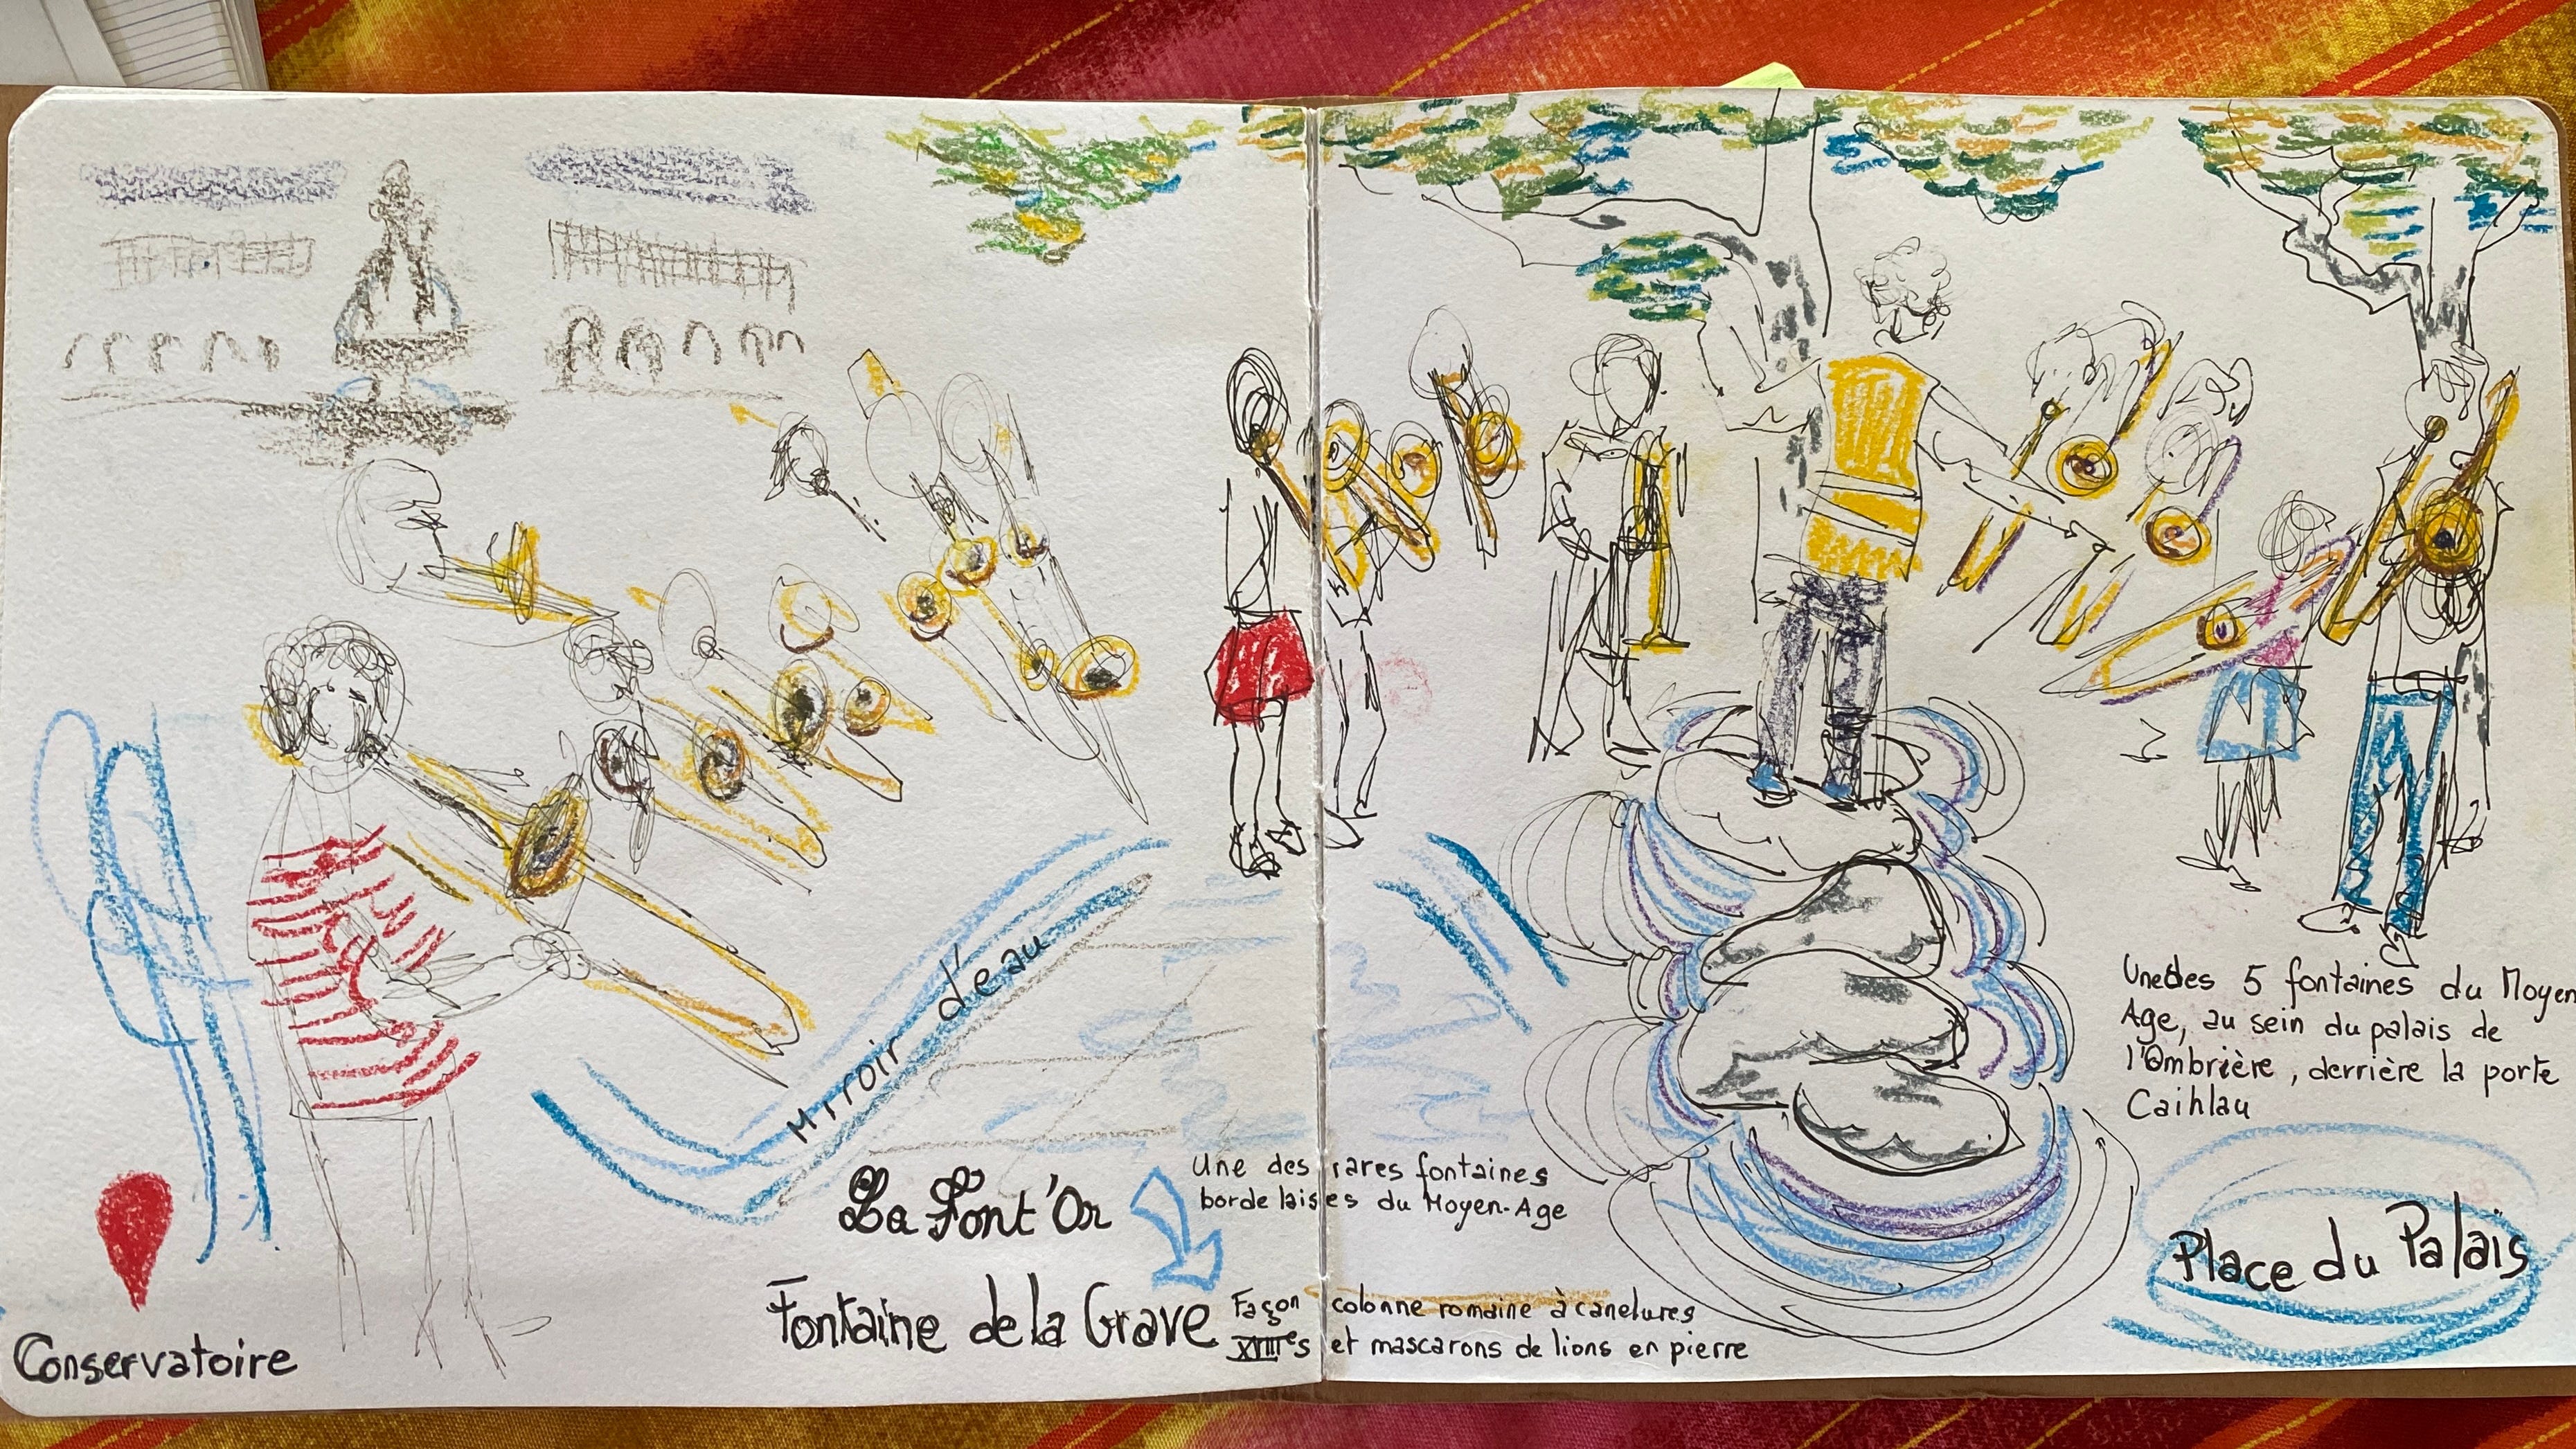 Conservatoire
Miroir d'eau
La Font'Or
Une des rares fontaines
bordelaises du Moyen-Age
Fontaine de la Grave
Façon colonne romaine à canelures
XVIIIes et mascarons de lions en pierre
Une des 5 fontaines du Moyen
Age, au sein du palais de
l'Ombrière, derrière la porte
Caihlau
Place du Palais